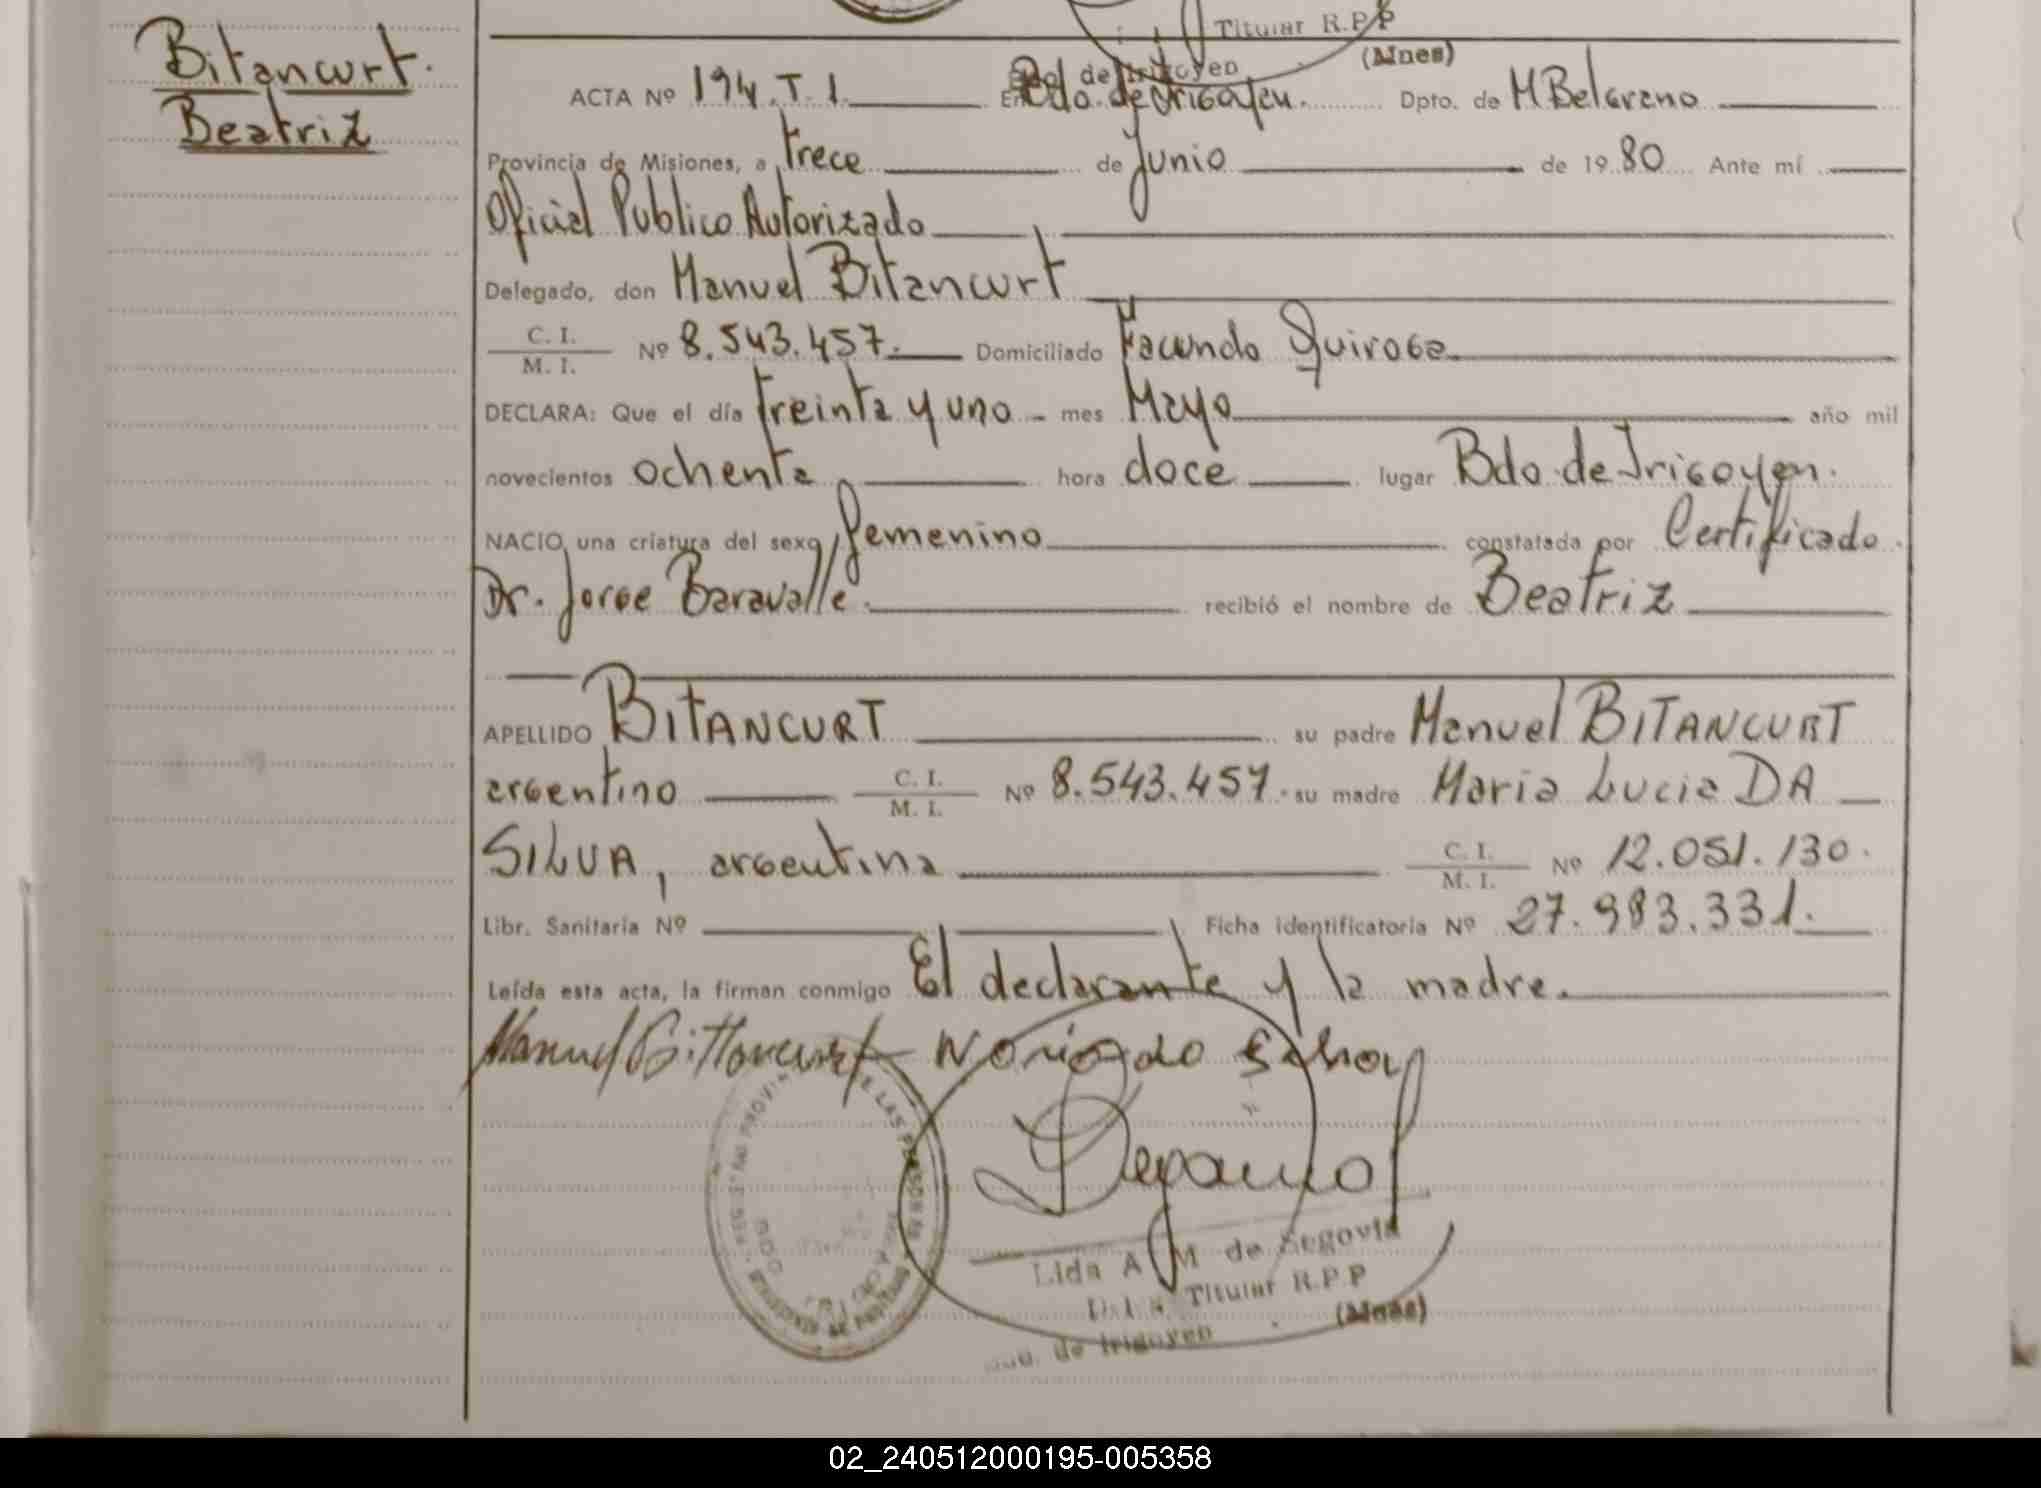 Titular R.P.P
(Mnes)
Bitancurt.
Beatriz
ACTA Nº 194.T.1. En Bdo. de Irigoyen. Dpto. de M Belgrano
Provincia de Misiones, a trece de Junio de 1980 Ante mí
Oficial Publico Autorizado
Delegado, don Manuel Bitancurt
C. I.
M. I. Nº 8.543.457. Domiciliado Facundo Quiroga
DECLARA: Que el día treinta y uno - mes Mayo año mil
novecientos ochenta hora doce lugar Bdo. de Irigoyen.
NACIO una criatura del sexo femenino constatada por Certificado.
Dr. Jorge Baravalle. recibió el nombre de Beatriz
APELLIDO BITANCURT su padre Manuel BITANCURT
argentino C. I.
M. I. Nº 8.543.457. su madre Maria Lucia DA
SILVA, argentina C. I.
M. I. Nº 12.051.130.
Libr. Sanitaria Nº Ficha identificatoria Nº 27.983.331.
Leída esta acta, la firman conmigo El declarante y la madre.
Manuel Bittancurt
Lida A M de Segovia
Titular R.P.P
(Mnes)
de Irigoyen
02_240512000195-005358